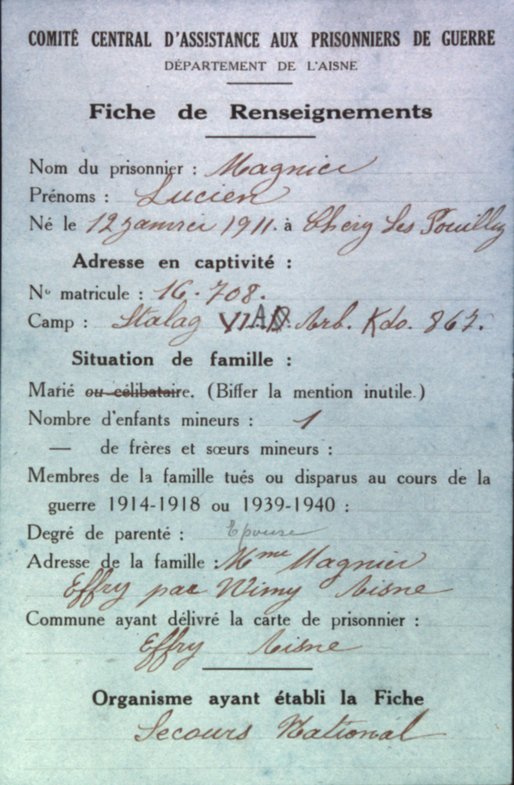 COMITÉ CENTRAL D'ASSISTANCE AUX PRISONNIERS DE GUERRE
DÉPARTEMENT DE L'AISNE
Fiche de Renseignements
Nom du prisonnier : Magnier
Prénoms : Lucien
Né le 12 janvier 1911. à Chéry Les Pouilly
Adresse en captivité :
No matricule : 16-708.
Camp : Stalag VI A Arb. Kdo. 867.
Situation de famille :
Marié ou célibataire. (Biffer la mention inutile.)
Nombre d'enfants mineurs : 1
— de frères et sœurs mineurs :
Membres de la famille tués ou disparus au cours de la
guerre 1914-1918 ou 1939-1940 :
Degré de parenté : Epouse
Adresse de la famille : Mme Magnier
Effry par Wimy Aisne
Commune ayant délivré la carte de prisonnier :
Effry Aisne
Organisme ayant établi la Fiche
Secours National